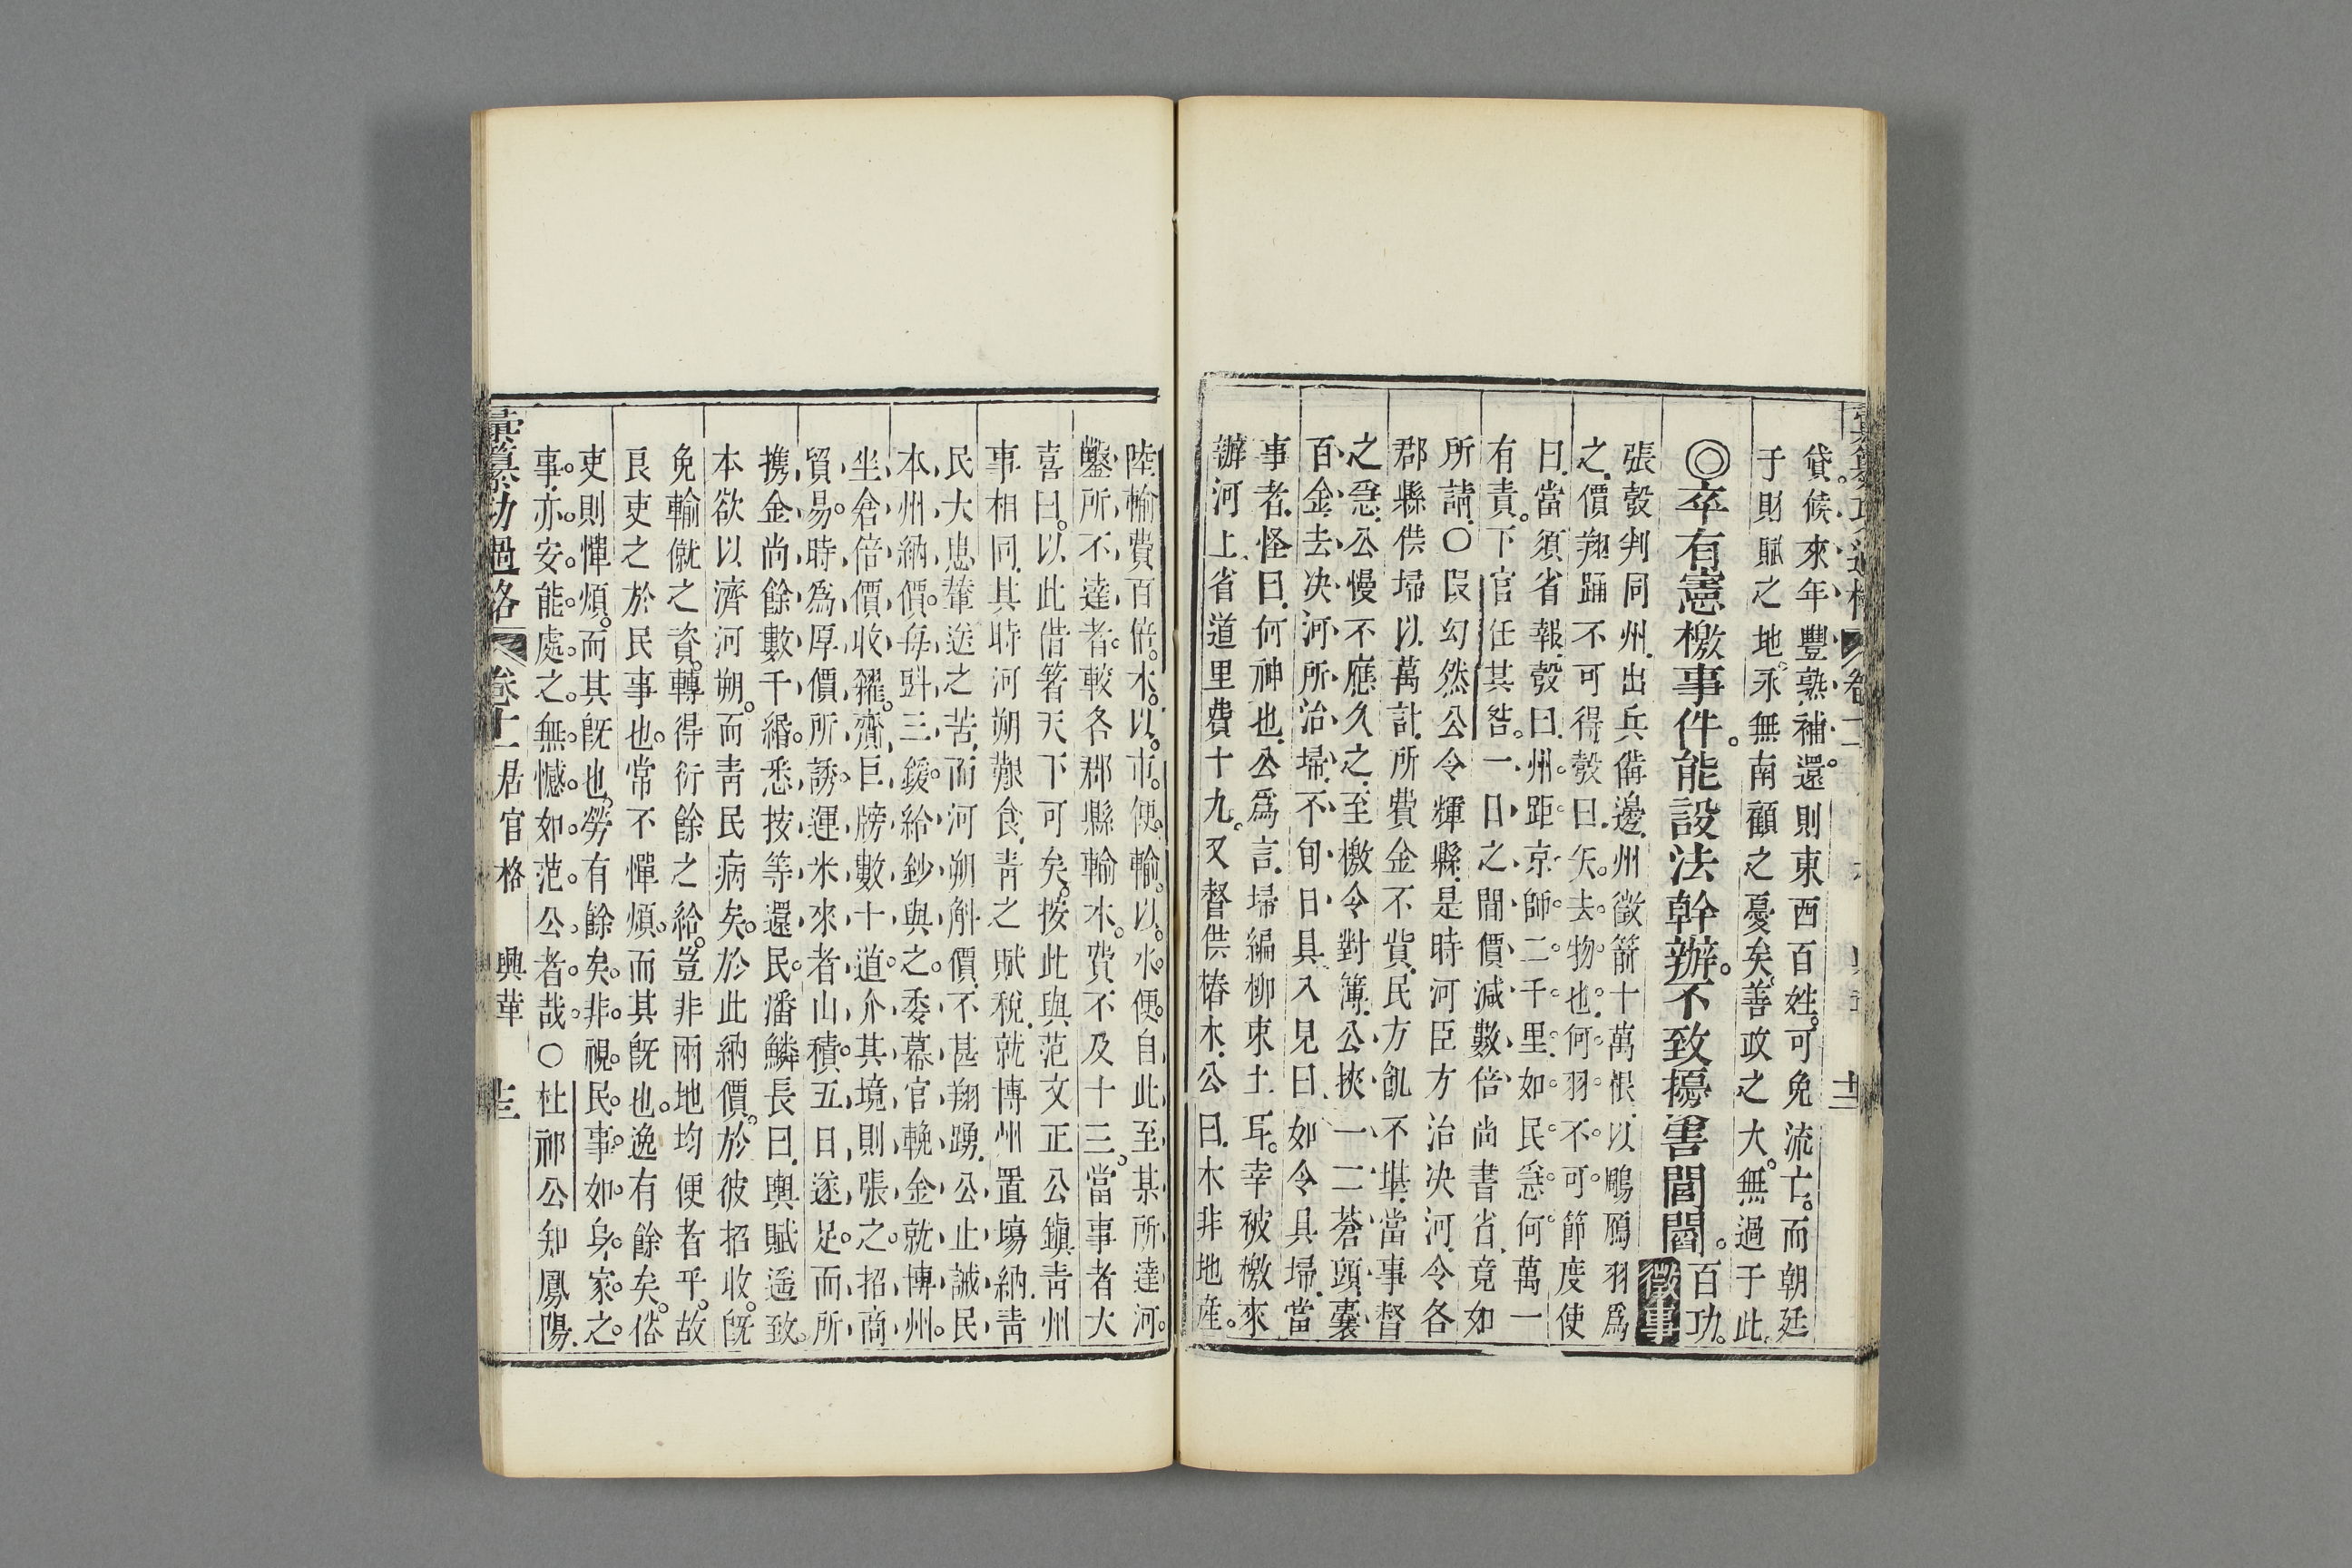 貸。候來年豐熟補還。則東西百姓。可免流亡。而朝廷
于財賦之地。永無南顧之憂矣。善政之大。無過于此。
◎卒有憲檄事件。能設法幹辦。不致擾害閭閻。百功。徵事
張㲄判同州。出兵備邊。州徵箭十萬根。以鵰鴈羽爲
之。價翔踊不可得。㲄曰。矢。去物也。何羽不可。節度使
曰。當須省報。㲄曰。州距京師二千里。如民急何。萬一
有責。下官任其咎。一日之間。價減數倍。尚書省竟如
所請。○段幻然公令輝縣。是時河臣方治決河。令各
郡縣供埽以萬計。所費金不貲。民方飢不堪。當事督
之急。公慢不應。久之。至檄令對簿。公挾一二蒼頭。囊
百金去決河所治埽。不旬日具。入見曰。如令具埽。當
事者怪曰。何神也。公爲言。埽編柳束土耳。幸被檄來
辦河上。省道里費十九。又督供樁木。公曰。木非地產。
陸輸費百倍。木以市便。輸以水便。自此至某所達河。
鑿所不達者。較各郡縣輸木。費不及十三。當事者大
喜曰。以此借箸天下可矣。按此與范文正公鎮青州
事相同。其時河朔艱食。青之賦稅。就博州置塲納。青
民大患輦送之苦。而河朔斛價。不甚翔踴。公止誡民
本州納價。每㪷三鍰。給鈔與之。委幕官輓金就博州。
坐倉倍價收糴。齎巨牓數十道。介其境則張之。招商
貿易。時爲厚價所誘。運米來者山積。五日遂足。而所
携金尚餘數千緡。悉按等還民。潘鱗長曰。輿賦遥致。
本欲以濟河朔。而青民病矣。於此納價。於彼招收。旣
免輸僦之資。轉得衍餘之給。豈非兩地均便者乎。故
良吏之於民事也。常不憚煩。而其旣也。逸有餘矣。俗
吏則憚煩。而其旣也。勞有餘矣。非視民事如身家之
事。亦安能處之無憾如范公者哉。○杜祁公知鳳陽。
彙纂功過格 卷十二 居官格 興革 十三